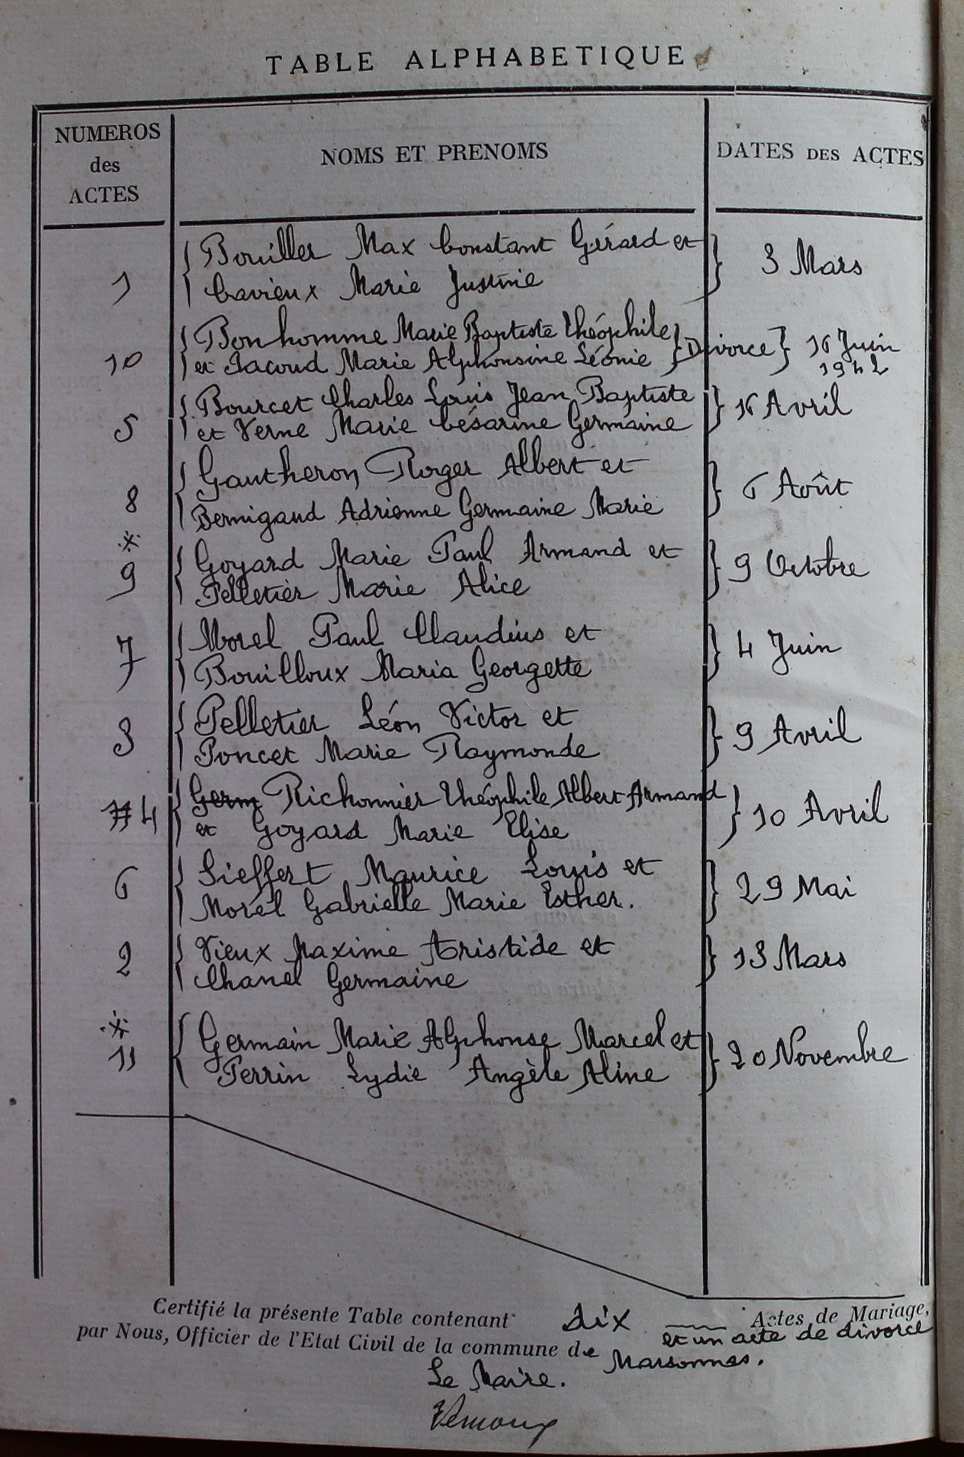 TABLE ALPHABETIQUE
NUMEROS
des
ACTES
NOMS ET PRENOMS
DATES DES ACTES
1 { Bouiller Max Constant Gérard et } 3 Mars
Cavieux Marie Justine
10 { Bonhomme Marie Baptiste Théophile } Divorce } 16 Juin
et Jacoud Marie Alphonsine Léonie 1942
5 { Bourcet Charles Louis Jean Baptiste } 16 Avril
et Verne Marie Césarine Germaine
8 { Gautheron Roger Albert et } 6 Août
Bernigaud Adrienne Germaine Marie
*
9 { Goyard Marie Paul Armand et } 9 Octobre
Pelletier Marie Alice
7 { Morel Paul Claudius et } 4 Juin
Bouilloux Maria Georgette
3 { Pelletier Léon Victor et } 9 Avril
Poncet Marie Raymonde
4 { Germ Richonnier Théophile Albert Armand } 10 Avril
et Goyard Marie Elise
6 { Sieffert Maurice Louis et } 29 Mai
Morel Gabrielle Marie Esther.
2 { Vieux Maxime Aristide et } 13 Mars
Chanel Germaine
*
11 { Germain Marie Alphonse Marcel et } 20 Novembre
Perrin Lydie Angèle Aline
Certifié la présente Table contenant dix Actes de Mariage,
et un acte de divorce
par Nous, Officier de l'Etat Civil de la commune de Marsonnas.
Le Maire.